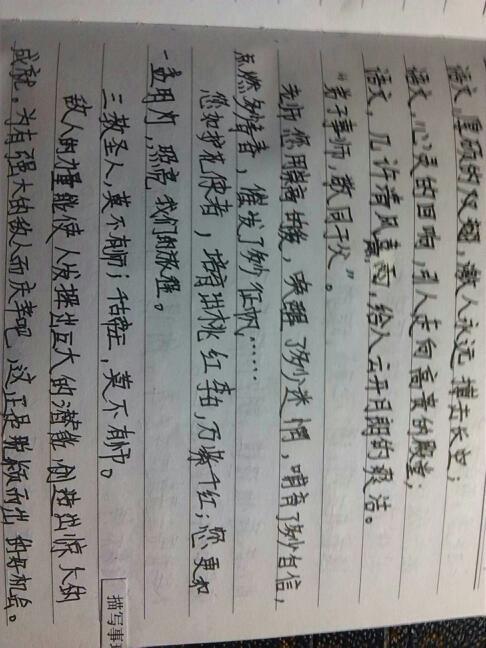 语文,厚实的双翅,激人永远搏击长空;
语文,心灵的回响,引人走向高贵的殿堂;
语文,几许清风喜雨,给人云开日朗的爽洁。
“弟子事师,敬同于父”。
老师,您用崇高的爱,唤醒了多少迷惘,哺育了多少自信,
点燃多少青春,催发了多少征帆……
您如护花使者,培育出桃红李白,万紫千红;您更如
一盏明灯,照亮我们的旅程。
三教圣人,莫不有师;千古帝王,莫不有师。
敌人的力量能使人发挥出巨大的潜能,创造出惊人的
成就。为有强大的敌人而庆幸吧,这正是脱颖而出的好机会。
描写事